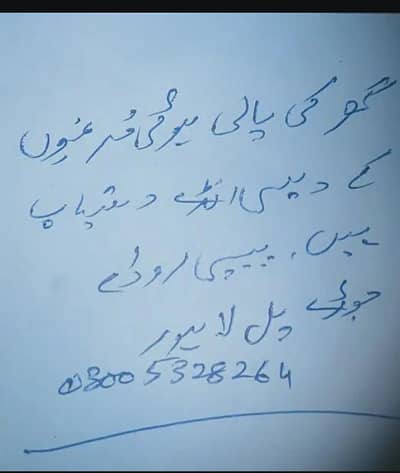 گھر کی پالی ہوئی مرغیوں
کے دیسی انڈے دستیاب
ہیں، پیپسی روڈ
جوڑے پل لاہور
03005328264